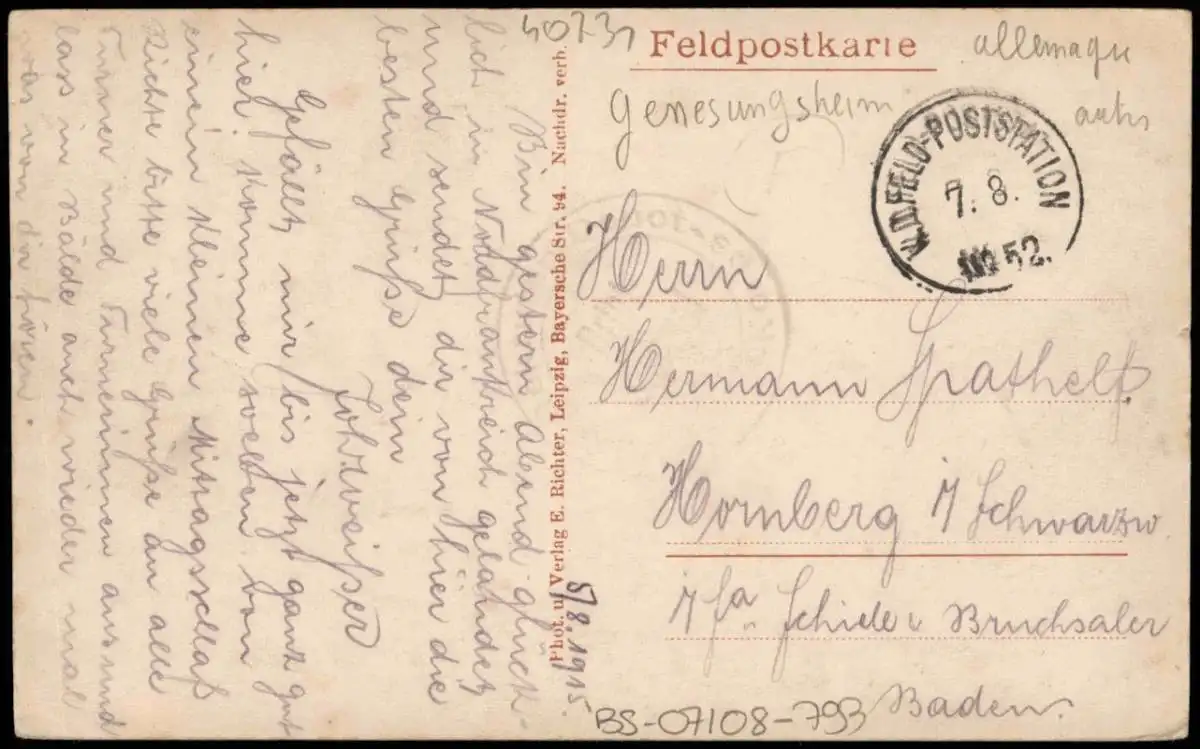 40731
Feldpostkarte
allemagne
Genesungsheim
autos
K.D. FELD-POSTSTATION
7. 8.
No 52.
Herrn
Hermann Spathelf
Hornberg i/Schwarzw
i/fa. Schiele u Bruchsaler
Baden.
BS-07108-793
Phot. u. Verlag E. Richter, Leipzig, Bayersche Str. 94. Nachdr. verb.
5/8. 1915.
Bin gestern Abend glück-
lich in Nordfrankreich gelandet
und sendet dir von hier die
besten Grüße dein
Gefällt mir bis jetzt ganz gut
hier. Komme soeben von
einem kleinen Mittagsschlaf
Richte bitte viele Grüße an alle
Turner und Turnerinnen aus und
lass in Bälde auch wieder mal
was von dir hören.